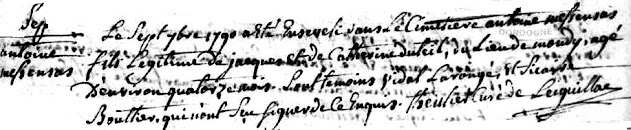 Sep
antoine
mespensas
Le Sept 7bre 1790 a été Enseveli dans Le Cimetiere antoine mespensas
fils Légitime de jacques et de Catherine duteil, du Lieu de moudy, agé
D'environ quatorze mois. Sont temoins vidal Lavange, et Sicari
Bouthier, qui n'ont Seu Signer de Ce Enquis. Theulier Curé de